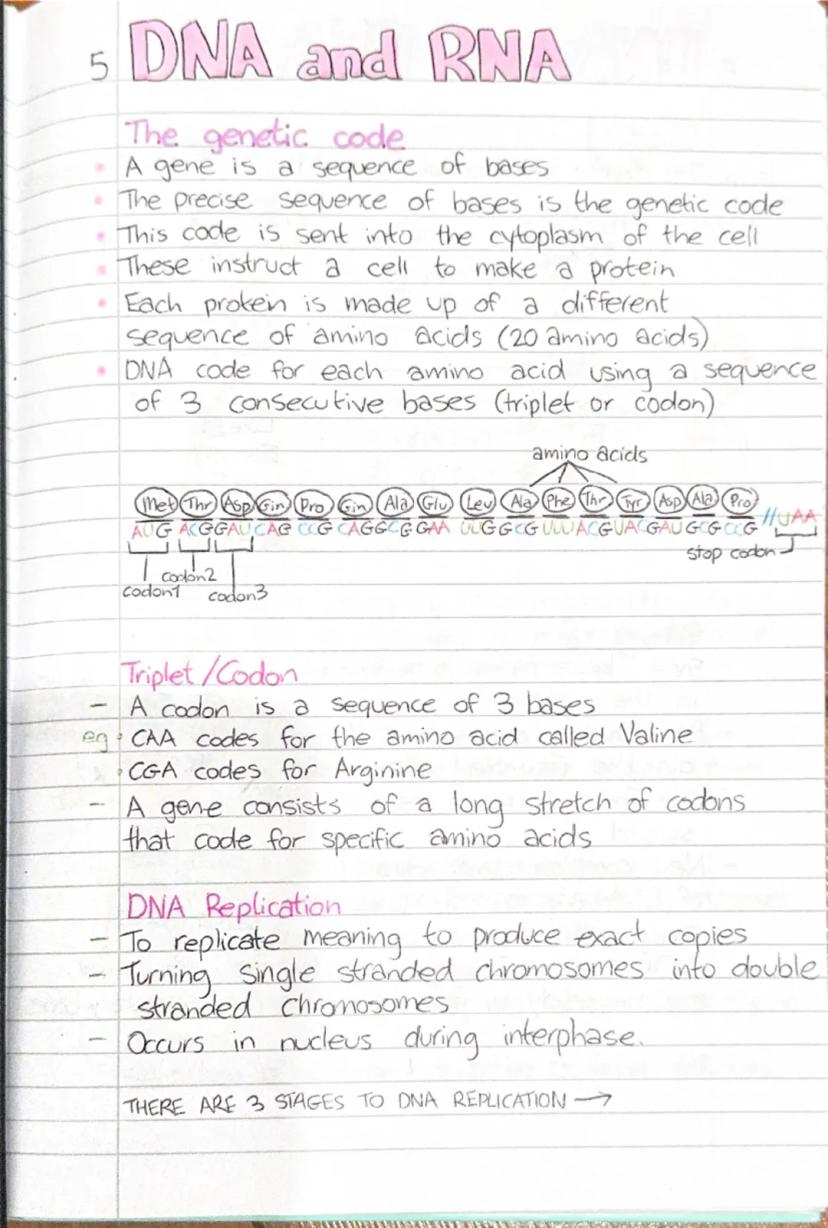 5 DNA and RNA
The genetic code
• A gene is a sequence of bases
• The precise sequence of bases is the genetic code
• This code is sent into the cytoplasm of the cell
• These instruct a cell to make a protein
• Each protein is made up of a different
sequence of amino acids (20 amino acids)
• DNA code for each amino acid using a sequence
of 3 consecutive bases (triplet or codon)
amino acids
Met Thr Asp Gin Pro Gin Ala Glu Leu Ala Phe Thr Tyr Asp Ala Pro
AUG ACG GAU CAG CCG CAG GCG GAA UUG GCG UUU ACG UAC GAU GCG CCG // UAA
stop codon
codon1 codon2 codon3
Triplet/Codon
- A codon is a sequence of 3 bases
eg • CAA codes for the amino acid called Valine
• CGA codes for Arginine
- A gene consists of a long stretch of codons
that code for specific amino acids
DNA Replication
- To replicate meaning to produce exact copies
- Turning single stranded chromosomes into double
stranded chromosomes
- Occurs in nucleus during interphase.
THERE ARE 3 STAGES TO DNA REPLICATION →